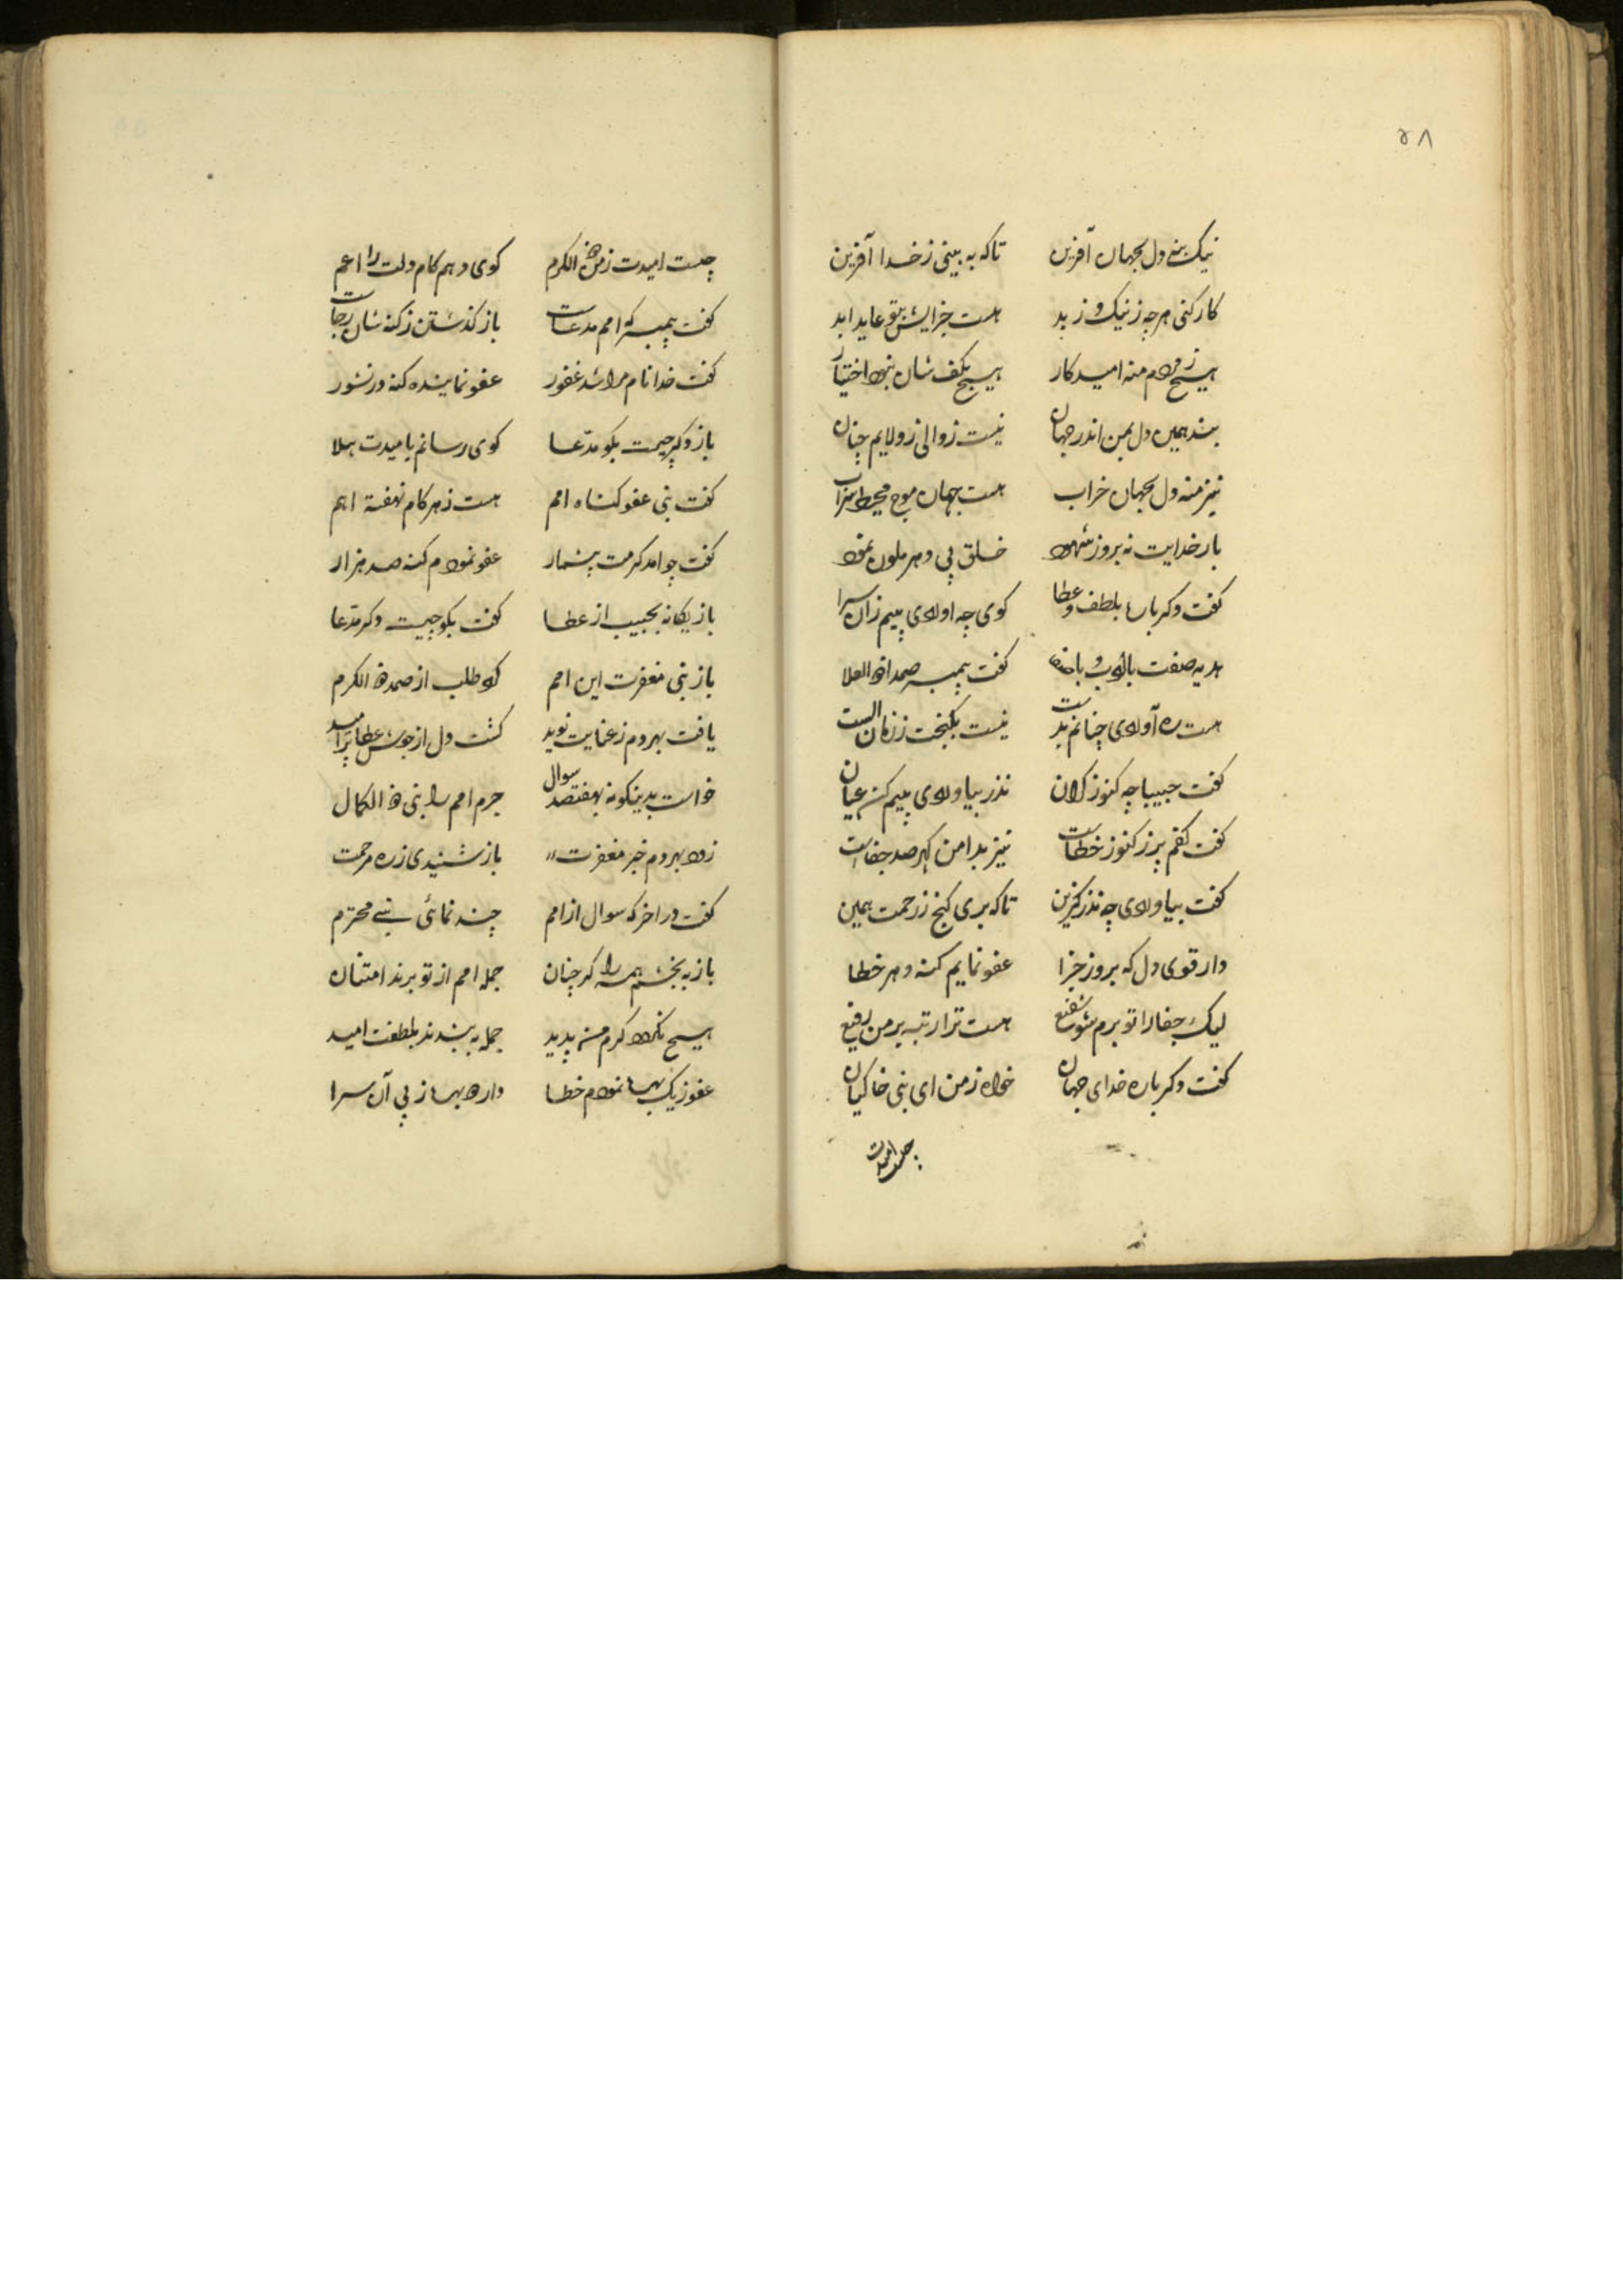 ۵۸
نیک بنه دل بجهان آفرین تا که به بینی ز خدا آفرین
کار کنی هرچه ز نیک و ز بد هست جزایش بتو عاید ابد
هیچ ز مردم منه امید کار هیچ بکف شان نبود اختیار
بند همین دل بمن اندر جهان نیست زوالی ز ولایم چنان
نیز منه دل بجهان خراب هست جهان موج محیط سراب
بار خدایت نه بروز شهود خلق پی دهر ملون نمود
کفت دکر بار بلطف و عطا کوی چه اوردی بپیم زان سرا
هدیه صفت با ادب و با کفت پیمبر صمد ذو العلا
هست ره آوردی چنانم بدست نیست بکنجت ز زمان الست
کفت حبیبا چه کنوز کران نذر بیاوردی بپیم کن عیان
کفت کفم پر ز کنوز خطاست نیز بدامن کهر صد جفاست
کفت بیاوردی چه نذر کزین تا که بری کنج ز رحمت همین
دار قوی دل که بروز جزا عفو نمایم کنه و هر خطا
لیک جفا را تو برم شو شفیع هست ترا رتبه بر من رفیع
کفت دکر باره خدای جهان خواه ز من ای نبی خاکیان
چیست امیدت
چیست امیدت ز من ذو الکرم کوی دهم کام دلت را اعم
کفت پیمبر که امم مدعاست باز کذشتن ز کنه شان رجاست
کفت خدا نام مرا شد غفور عفو نماینده کنه در نشور
باز دکر چیست بکو مدعا کوی رسانم بامیدت هلا
کفت نبی عفو کناه امم هست ز هر کام نهفته اهم
کفت چو امد کرمت بیشمار عفو نمودم کنه صد هزار
باز یکانه بحبیب از عطا کفت بکو چیست دکر مدعا
باز نبی مغفرت این امم کرد طلب از صمد ذو الکرم
یافت بهر دم ز عنایت نوید کشت دل از جوش عطا پر امید
خواست بدینکونه بهفتصد سوال جرم امم را نبی ذو الکمال
زود بهر دم خبر مغفرت باز شنیدی ز ره مرحمت
کفت در اخر که سوال از امم چند نمائی نبی محترم
باز به بخشم همه را کر چنان جمله امم از تو برند امتنان
هیچ نکردد کرم من پدید جمله به بندند بلطفت امید
عفو ز یک بهره نمودم خطا دارم بهره ز پی آن سرا